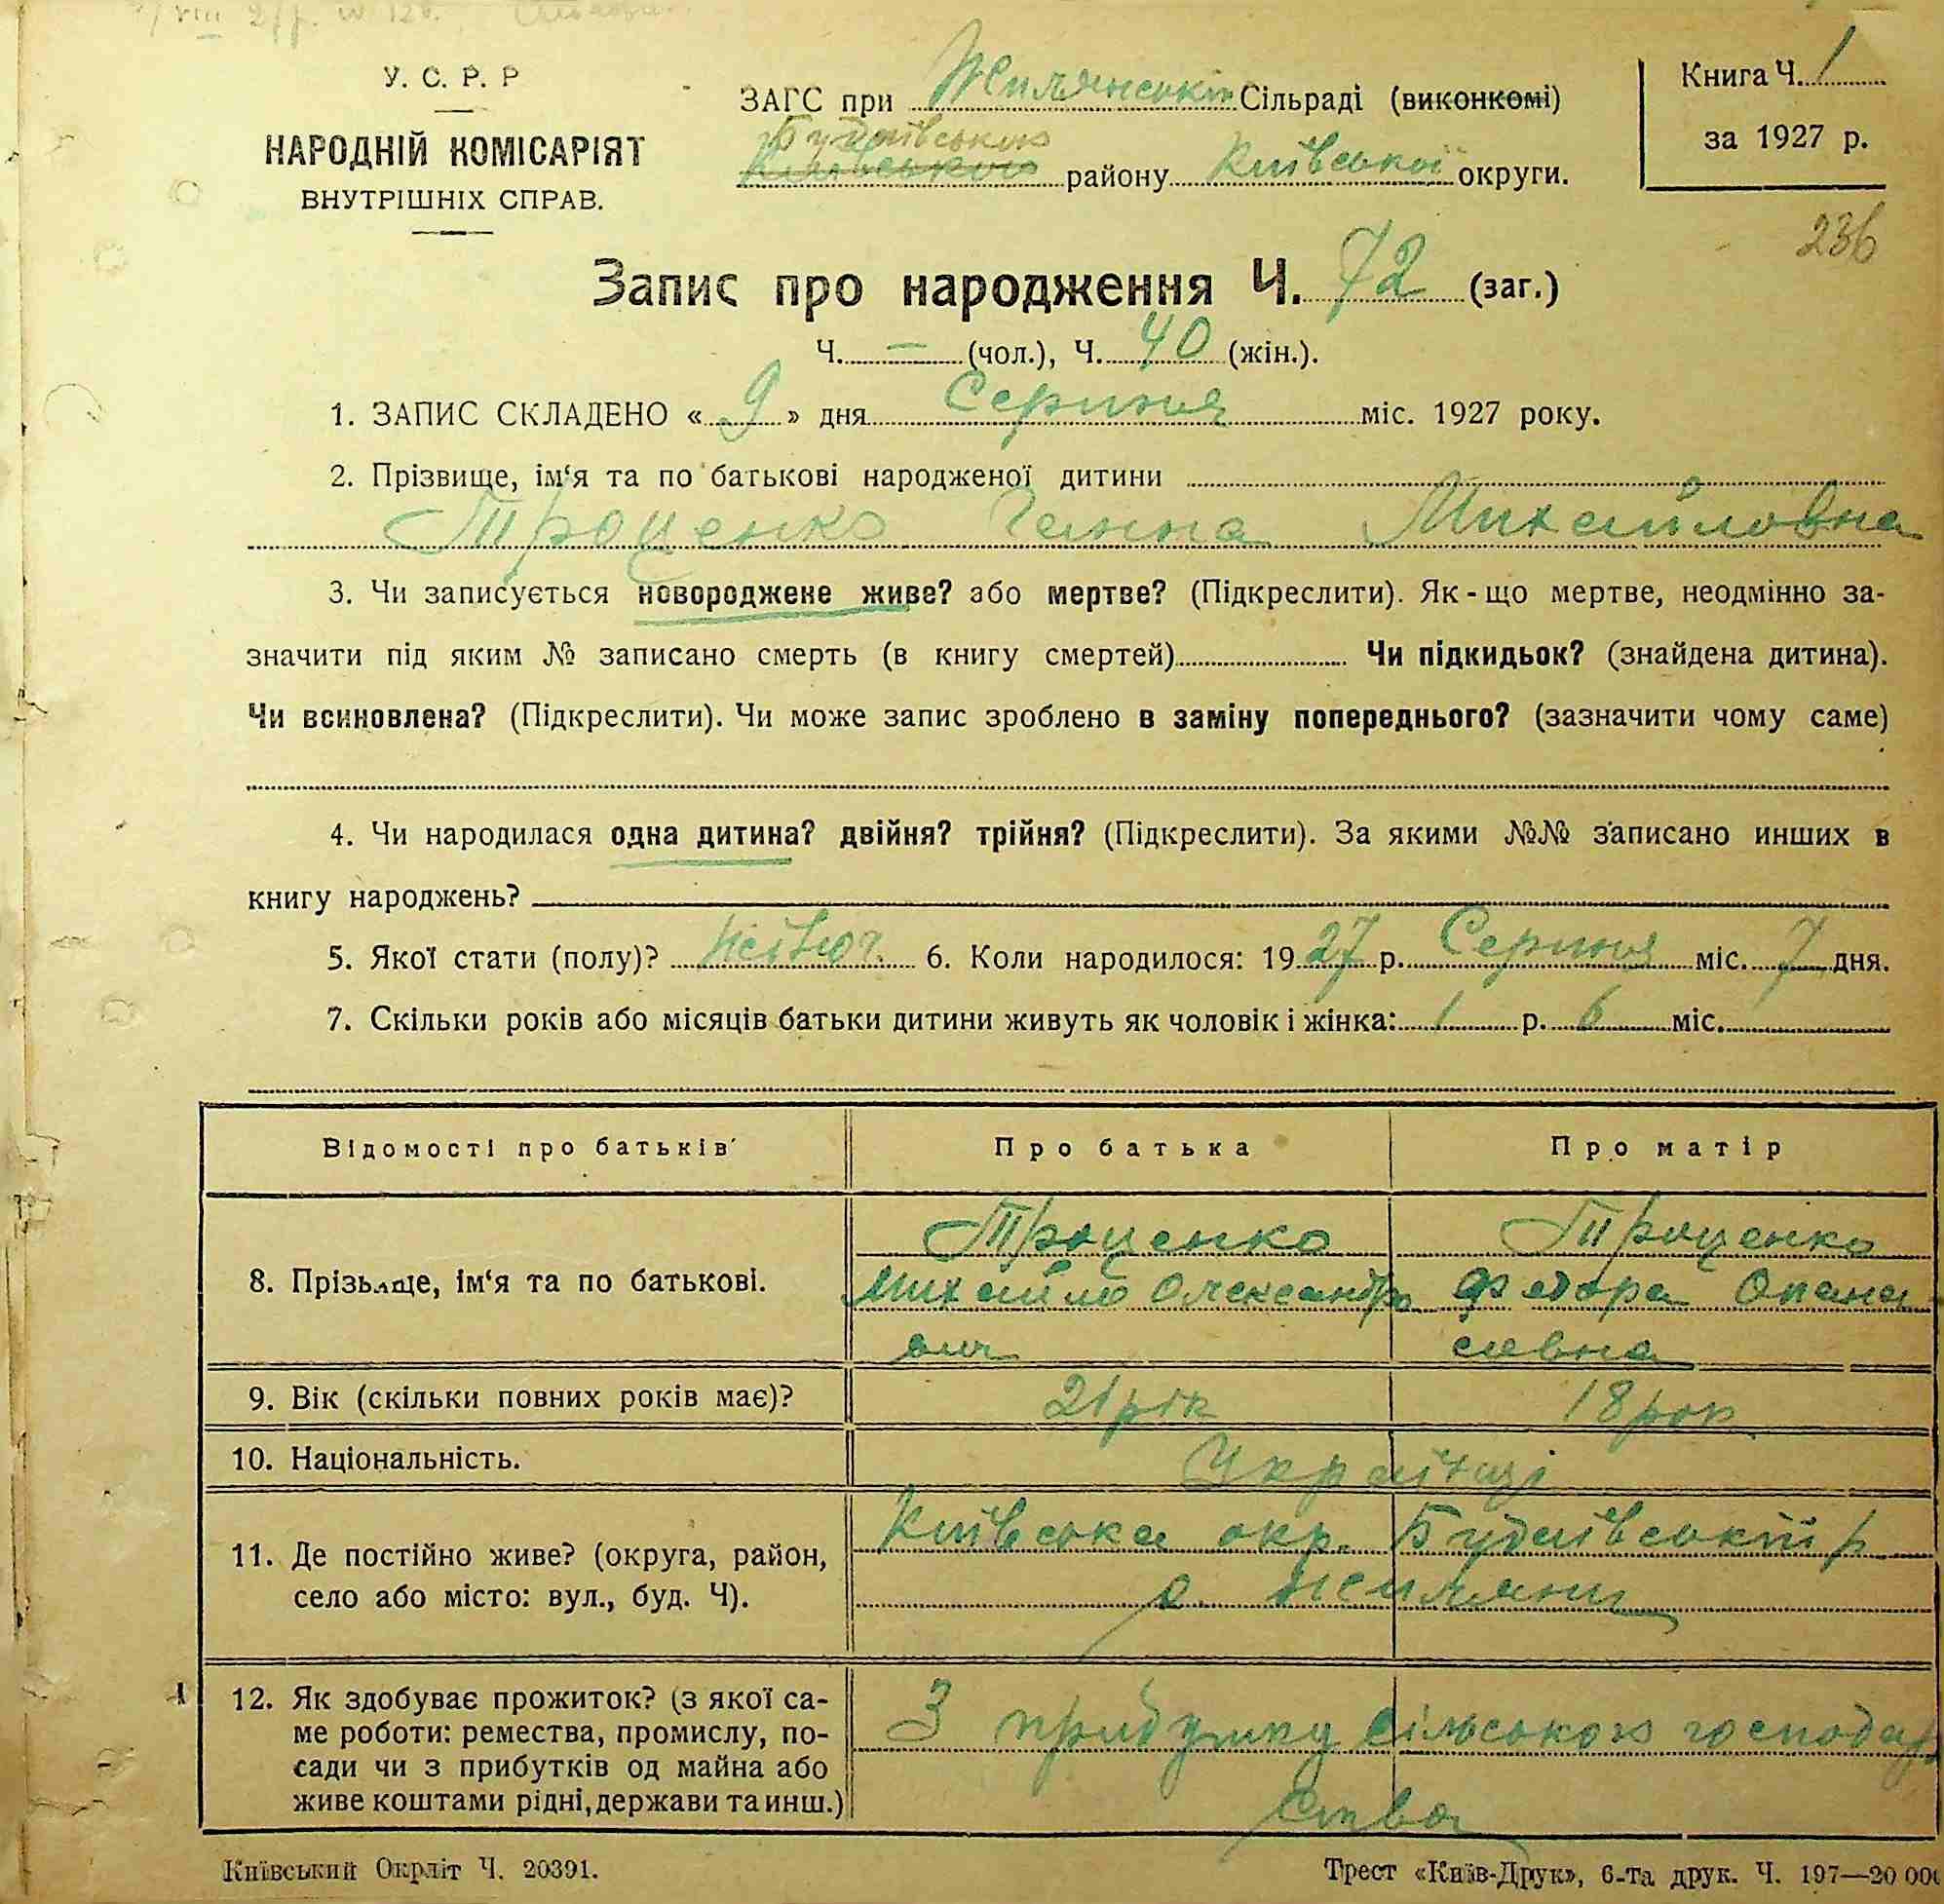 У. С. Р. Р
НАРОДНІЙ КОМІСАРІЯТ
ВНУТРІШНІХ СПРАВ.
ЗАГС при Жилянській Сільраді (виконкомі)
Будаївського
Київського району Київської округи.
Книга Ч. 1
за 1927 р.
236
Запис про народження Ч. 72 (заг.)
Ч. — (чол.), Ч. 40 (жін.).
1. ЗАПИС СКЛАДЕНО « 9 » дня Серпня міс. 1927 року.
2. Прізвище, ім‘я та по батькові народженої дитини
Троценко Ганна Михайловна
3. Чи записується новороджене живе? або мертве? (Підкреслити). Як-що мертве, неодмінно за-
значити під яким № записано смерть (в книгу смертей) Чи підкидьок? (знайдена дитина).
Чи всиновлена? (Підкреслити). Чи може запис зроблено в заміну попереднього? (зазначити чому саме)
4. Чи народилася одна дитина? двійня? трійня? (Підкреслити). За якими №№ записано инших в
книгу народжень?
5. Якої стати (полу)? жіноч. 6. Коли народилося: 1927 р. Серпня міс. 7 дня.
7. Скільки років або місяців батьки дитини живуть як чоловік і жінка: 1 р. 6 міс.
Відомості про батьків Про батька Про матір
8. Прізвище, ім‘я та по батькові.
Троценко
Михайло Олександро
вич
Троценко
Федора Опана
сівна
9. Вік (скільки повних років має)? 21 рік 18 рок
10. Національність. Українці
11. Де постійно живе? (округа, район,
село або місто: вул., буд. Ч).
Київська окр. Будаївський р.
с. Жиляни
12. Як здобуває прожиток? (з якої са-
ме роботи: ремества, промислу, по-
сади чи з прибутків од майна або
живе коштами рідні, держави та инш.)
З прибутку сільського господар
ства
Київський Окрліт Ч. 20391.
Трест «Київ-Друк», 6-та друк. Ч. 197—20 000